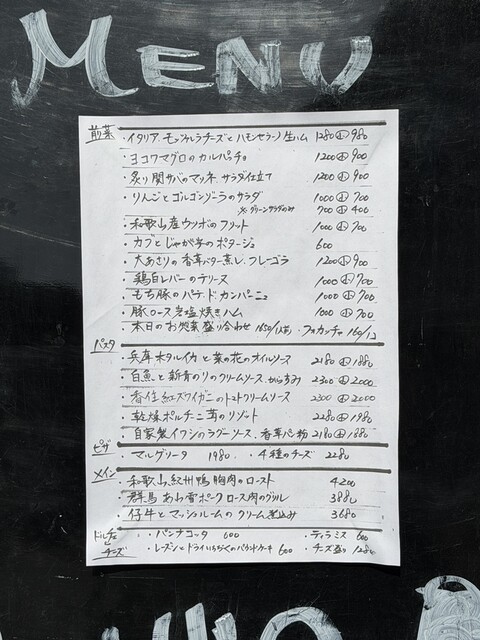 MENU
前菜
・イタリア モッツァレラチーズとハモンセラーノ生ハム 1280 小 980
・ヨコワマグロのカルパッチョ 1200 小 900
・炙り関サバのマリネ サラダ仕立て 1200 小 900
・りんごとゴルゴンゾーラのサラダ 1000 小 700
※グリーンサラダのみ 700 小 400
・和歌山産ウツボのフリット 1000 小 700
・カブとじゃが芋のポタージュ 600
・大あさりの香草バター蒸し ブレゴラ 1200 小 900
・鶏白レバーのテリーヌ 1000 小 700
・もち豚のパテ・ド・カンパーニュ 1000 小 700
・豚ロース岩塩焼きハム 1000 小 700
・本日のお惣菜盛り合わせ 1650/1人前 ・フォカッチャ 160/1コ
パスタ
・兵庫ホタルイカと菜の花のオイルソース 2180 小 1880
・白魚と新青のりのクリームソース からすみ 2300 小 2000
・香住紅ズワイガニのトマトクリームソース 2300 小 2000
・乾燥ポルチーニ茸のリゾット 2280 小 1980
・自家製イワシのラグーソース、香草パン粉 2180 小 1880
ピザ
・マルゲリータ 1980 ・4種のチーズ 2280
メイン
・和歌山、紀州鴨胸肉のロースト 4200
・群馬 あわ雪ポーク ロース肉のグリル 3880
・仔牛とマッシュルームのクリーム煮込み 3680
ドルチェとチーズ
・パンナコッタ 600 ・ティラミス 600
・レーズンとドライいちぢくのパウンドケーキ 600 ・チーズ盛り 1280